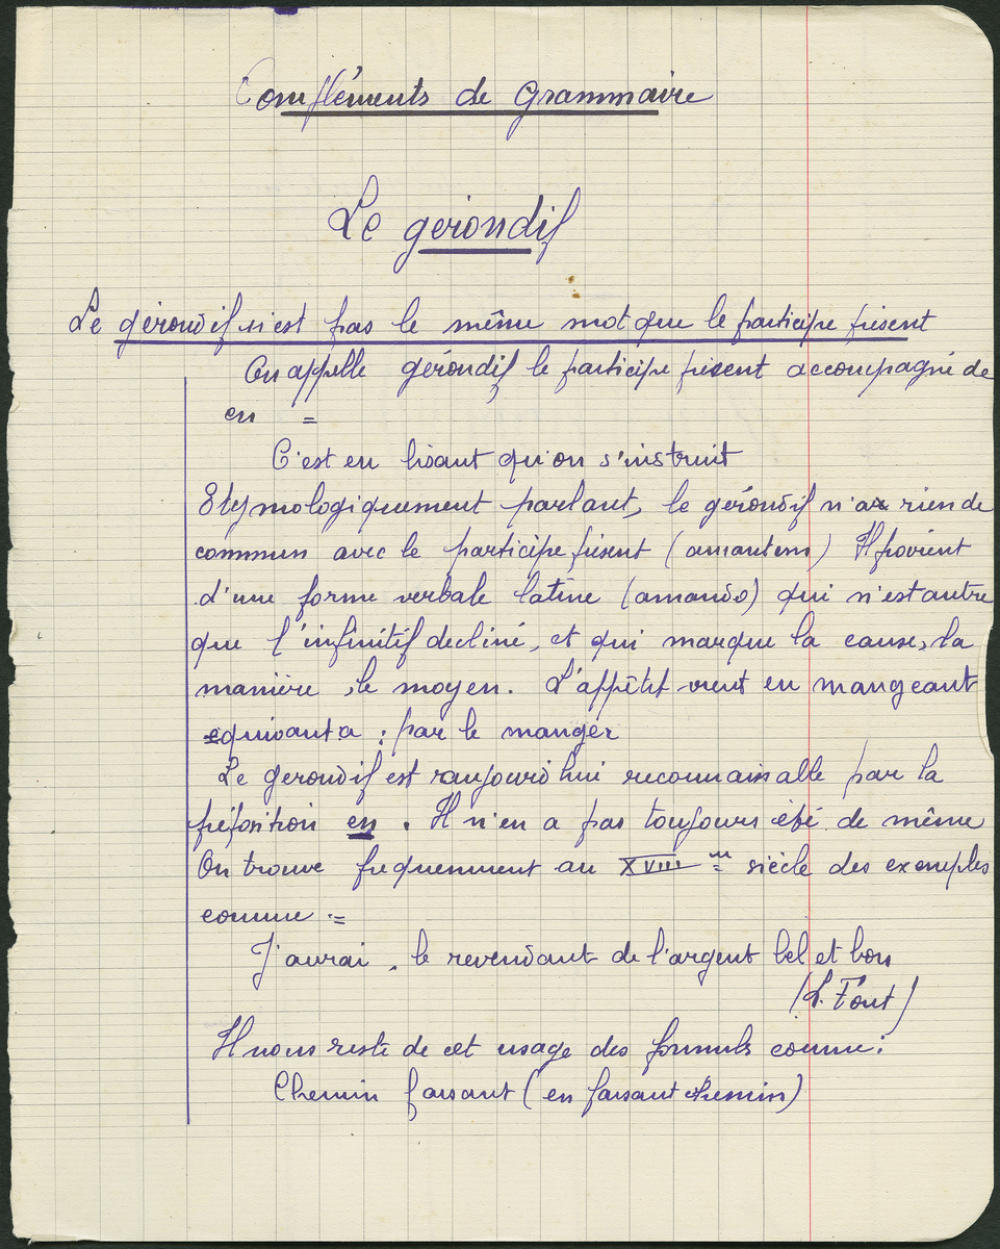 Compléments de Grammaire
Le gérondif
Le gérondif n'est pas le même mot que le participe présent
On appelle gérondif le participe présent accompagné de
en =
C'est en lisant qu'on s'instruit
Etymologiquement parlant, le gérondif n'a rien de
commun avec le participe présent (amantem) Il provient
d'une forme verbale latine (amando) qui n'est autre
que l'infinitif decliné, et qui marque la cause, la
manière, le moyen. L'appétit vient en mangeant
equivaut a : par le manger
Le gerondif est aujourd'hui reconnaissable par la
préposition en. Il n'en a pas toujours été de même
On trouve frequemment au XVIII me siècle des exemples
comme :=
J'aurai, le revendant de l'argent bel et bon
(L. Font)
Il nous reste de cet usage des formules comme :
Chemin faisant (en faisant chemin)